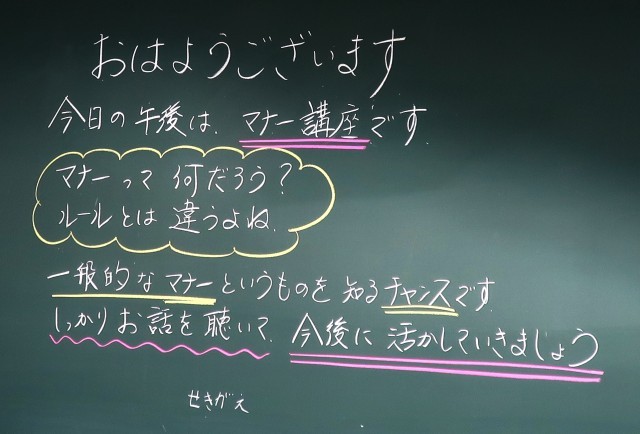 おはようございます
今日の午後は、マナー講座です。
マナーって何だろう?
ルールとは違うよね。
一般的なマナーというものを知るチャンスです。
しっかりお話を聴いて、今後に活かしていきましょう
せきがえ